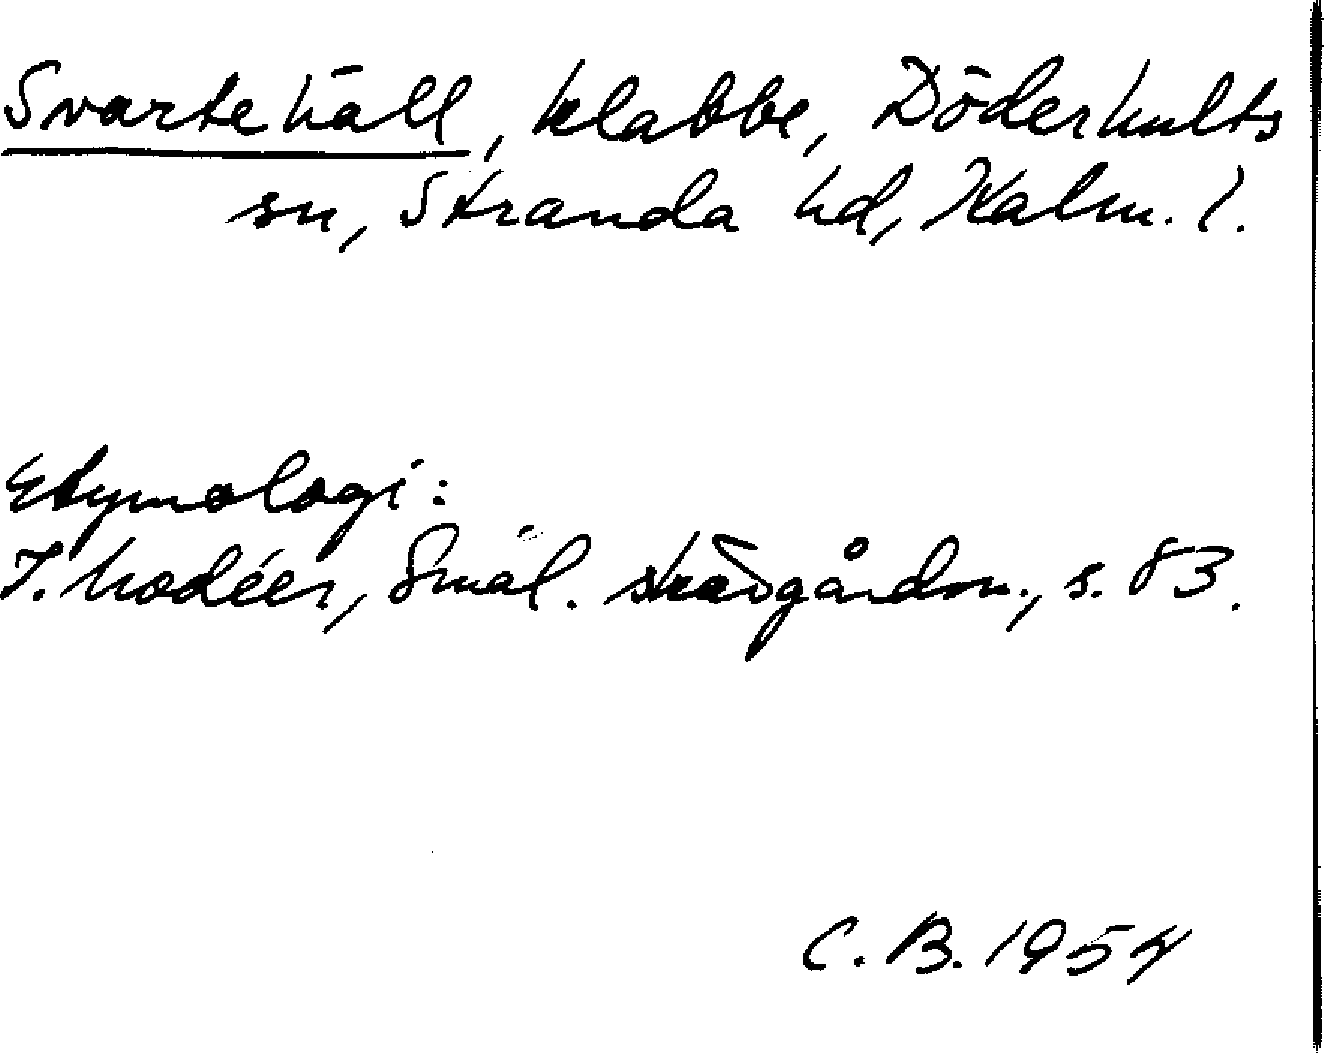 Svartehäll, klabbe, Döderhults
sn, Stranda hd, Kalm. l.
Etymologi:
I. Modéer, Smål. skärgårdsn., s. 83.
C. B. 1954